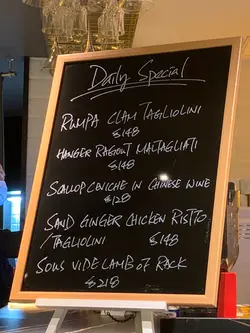 Daily Special
RUMPA CLAM TAGLIOLINI
$148
HANGER RAGOUT MALTAGLIATI
$148
SCALLOP CEVICHE IN CHINESE WINE
$128
SAND GINGER CHICKEN RISTTO
/TAGLIOLINI $148
SOUS VIDE LAMB OF RACK
$218